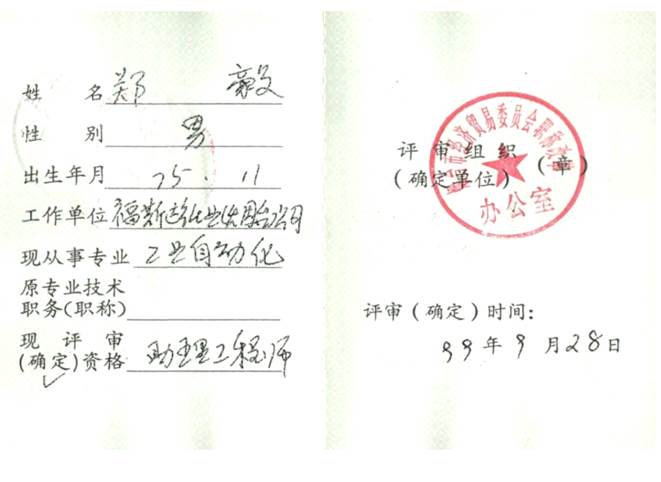 姓 名 郑 毅
性 别 男
出生年月 75.11
工作单位 福斯
现从事专业 工业自动化
原专业技术
职务(职称)
现 评 审
(确定)资格 助理工程师
评 审 组 织
(确定单位) (章)
市经济贸易委员会职称改革
办公室
评审(确定)时间:
99年9月28日